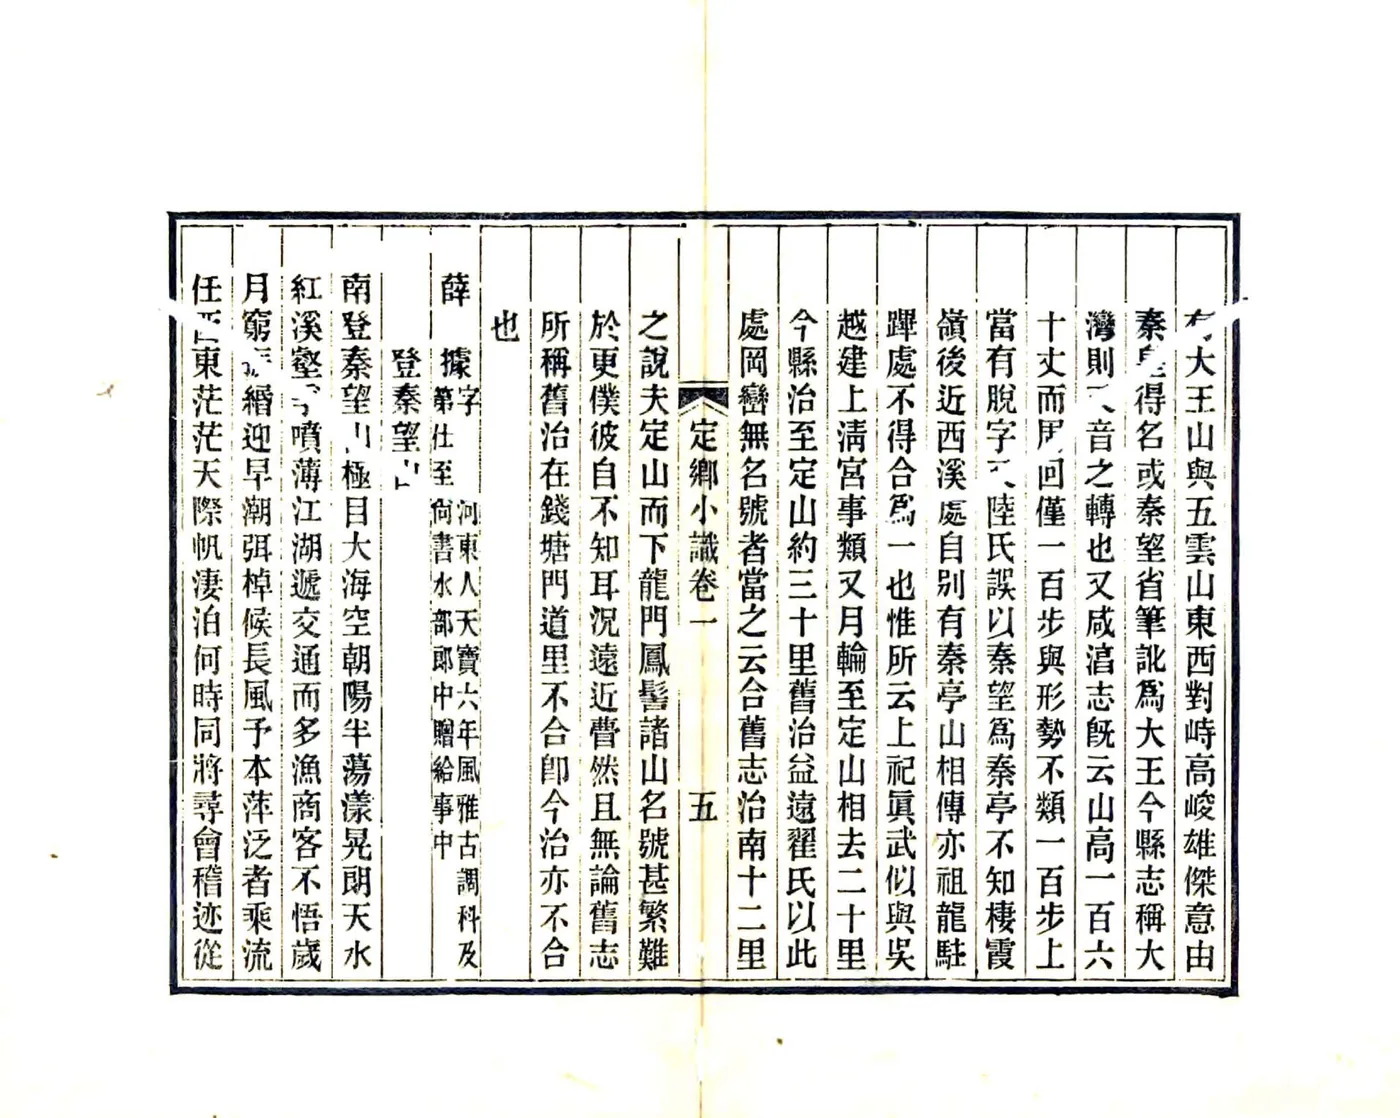 大王山與五雲山東西對峙高峻雄傑意由
秦皇得名或秦望省筆訛爲大王今縣志稱大
灣則 音之轉也又咸淳志旣云山高一百六
十丈而周回僅一百步與形勢不類一百步上
當有脫字 陸氏誤以秦望爲秦亭不知棲霞
嶺後近西溪處自別有秦亭山相傳亦祖龍駐
蹕處不得合爲一也惟所云上祀眞武似與吳
越建上淸宮事類又月輪至定山相去二十里
今縣治至定山約三十里舊治益遠翟氏以此
處岡巒無名號者當之云合舊志治南十二里
定鄉小識卷一
五
之說夫定山而下龍門鳳髻諸山名號甚繁難
於更僕彼自不知耳況遠近瞢然且無論舊志
所稱舊治在錢塘門道里不合卽今治亦不合
也
薛據字 河東人天寶六年風雅古調科及
第仕至尙書水部郎中贈給事中
登秦望山
南登秦望山極目大海空朝陽半蕩漾晃朗天水
紅溪壑 噴薄江湖遞交通而多漁商客不悟歲
月窮 緡迎早潮弭棹候長風予本萍泛者乘流
任西東茫茫天際帆淒泊何時同將尋會稽迹從